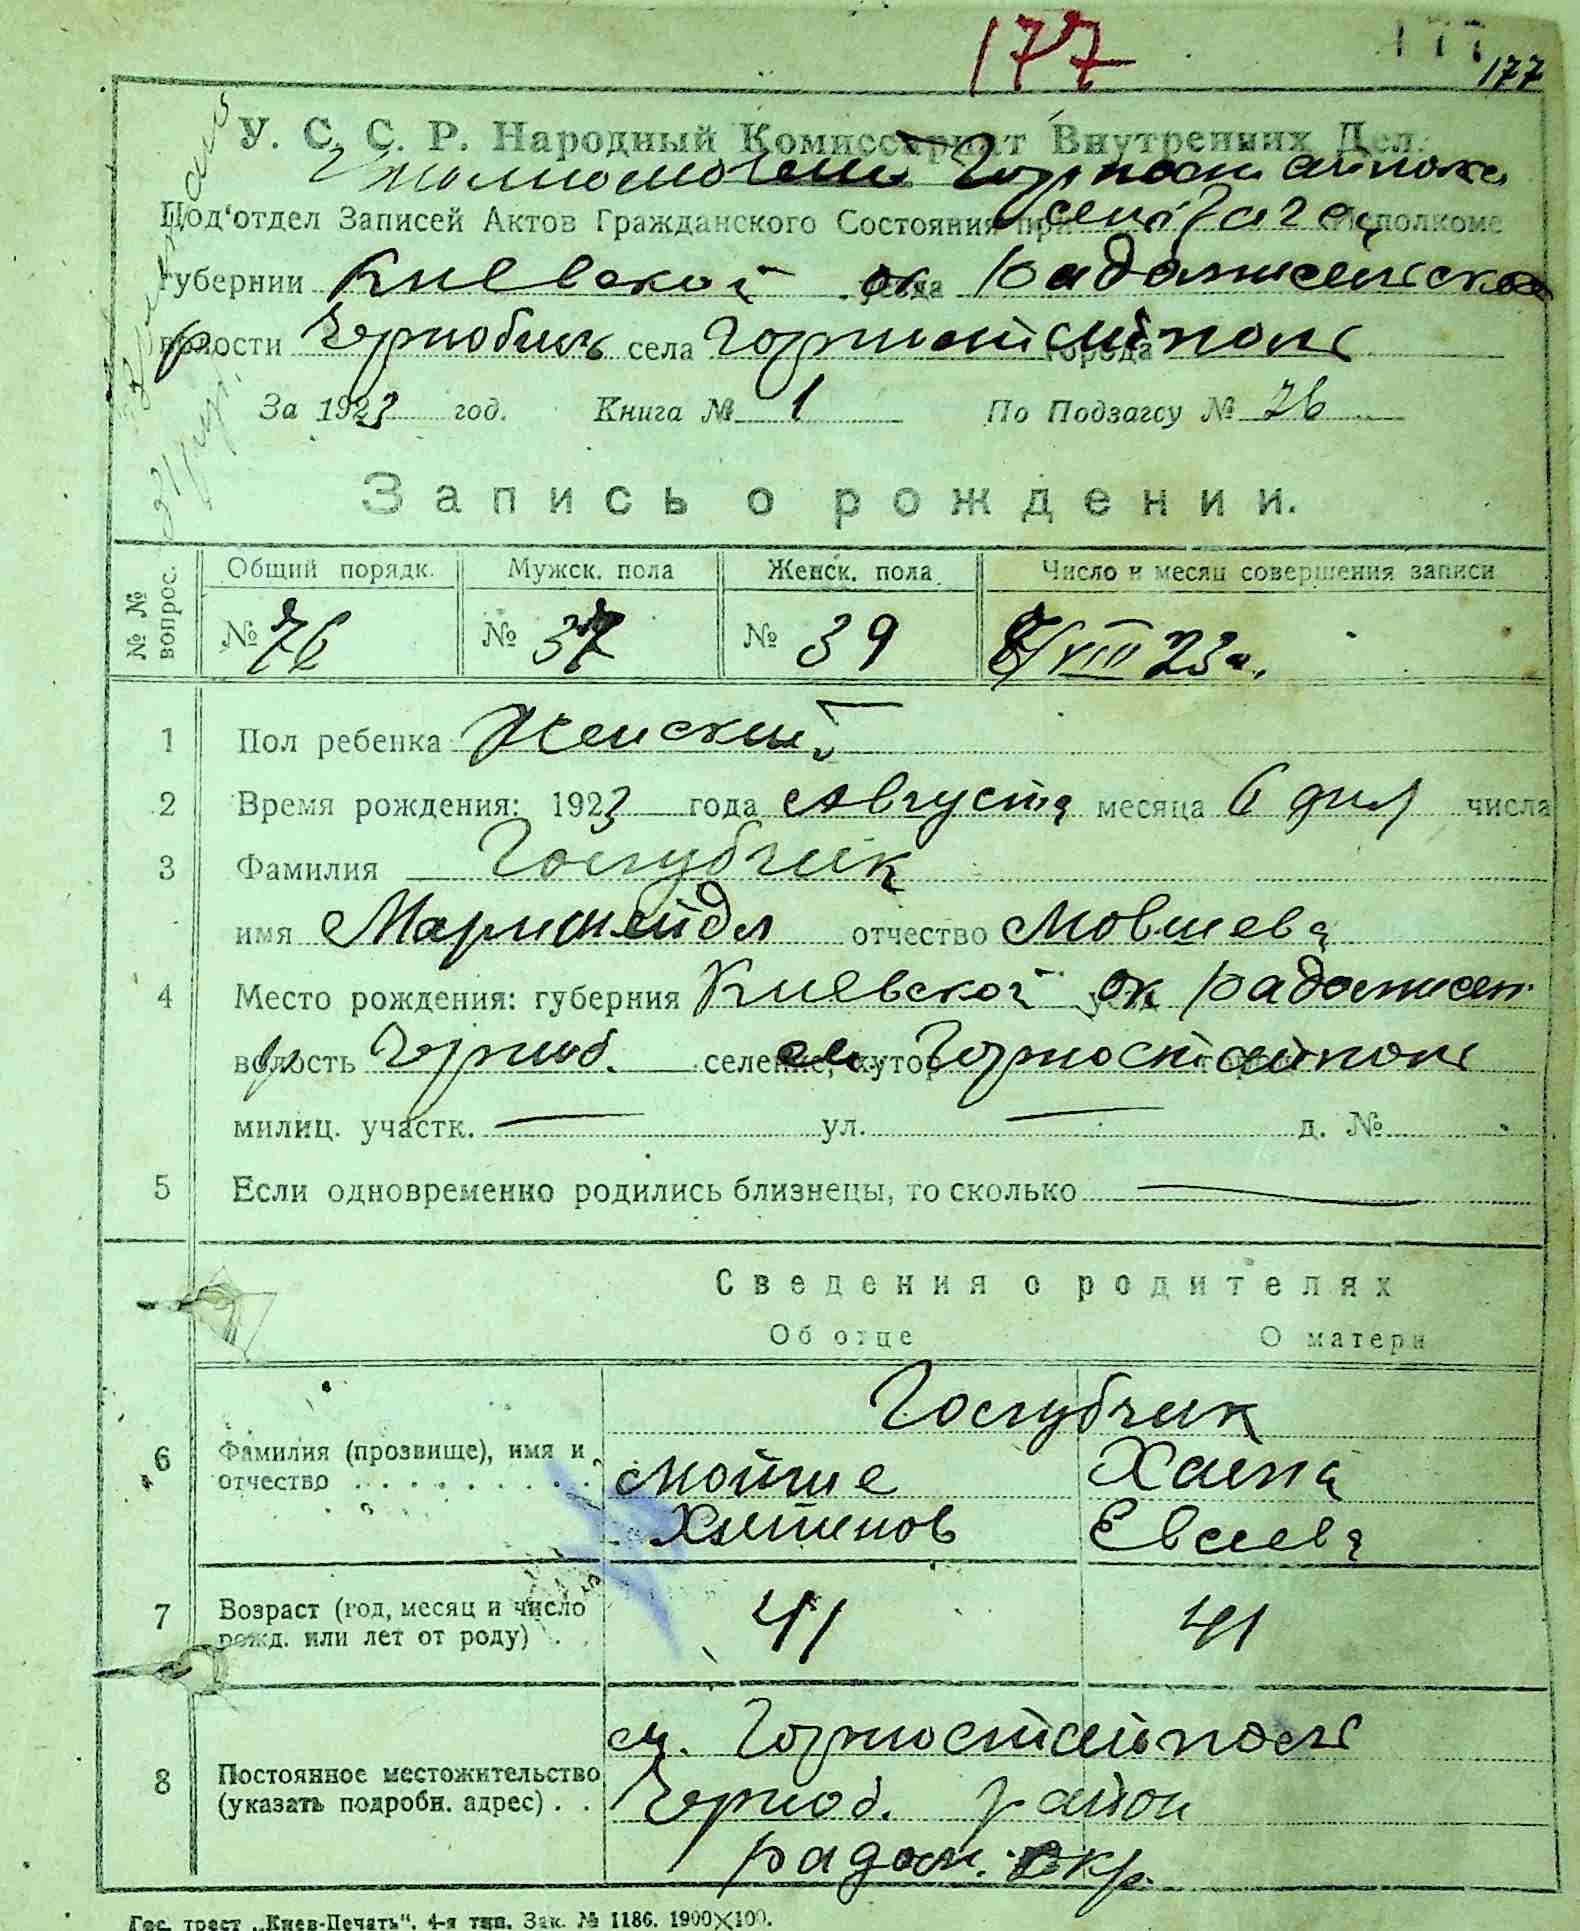 177
177
177
У. С. С. Р. Народный Комиссариат Внутренних Дел.
Горностайполь
Под'отдел Записей Актов Гражданского Состояния при Исполкоме
губернии Киевской ок Радомысльской
р волости Чернобыль села Горностайполь города
За 1923 год. Книга № 1 По Подзагсу № 76
Запись о рождении.
№ № вопрос. Общий порядк. Мужск. пола Женск. пола Число и месяц совершения записи
№ 76 № 37 № 39 8/VIII 23 г.
1 Пол ребенка Женский
2 Время рождения: 1923 года Августа месяца 6 дня числа
3 Фамилия Голубчик
имя отчество Мовшева
4 Место рождения: губерния Киевской ок Радомысл
р волость Черноб. селение, хутор м. Горностайполь
милиц. участк. — ул. — д. №
5 Если одновременно родились близнецы, то сколько —
Сведения о родителях
Об отце О матери
Голубчик
6 Фамилия (прозвище), имя и отчество Мойше Хаяна
Евсеева
7 Возраст (год, месяц и число рожд. или лет от роду) 41 41
м. Горностайполь
8 Постоянное местожительство (указать подробн. адрес) Черноб. район
радом. окр.
Гос. трест „Киев-Печать“. 4-я тип. Зак. № 1186. 1900×100.